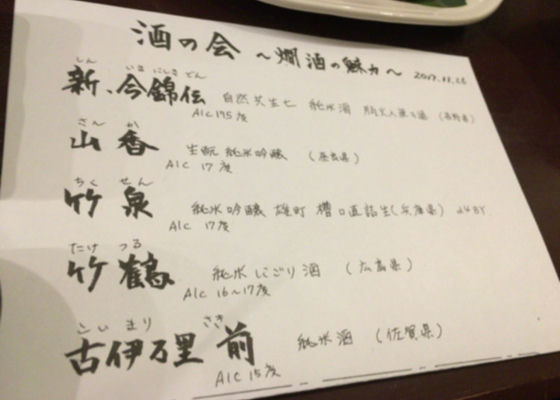 酒の会 ~燗酒の魅力~ 2017.11.26
しん いまにしきでん
新、今錦伝 自然 生酛 純米酒 (長野県)
Alc 17.5度
さん か
山香 生酛 純米吟醸
Alc 17度
ちく せん
竹泉 純米吟醸 雄町 槽口直詰生(兵庫県) 24BY
Alc 17度
たけ つる
竹鶴 純米 にごり酒 (広島県)
Alc 16~17度
こいまり さき
古伊万里 前 純米酒 (佐賀県)
Alc 15度